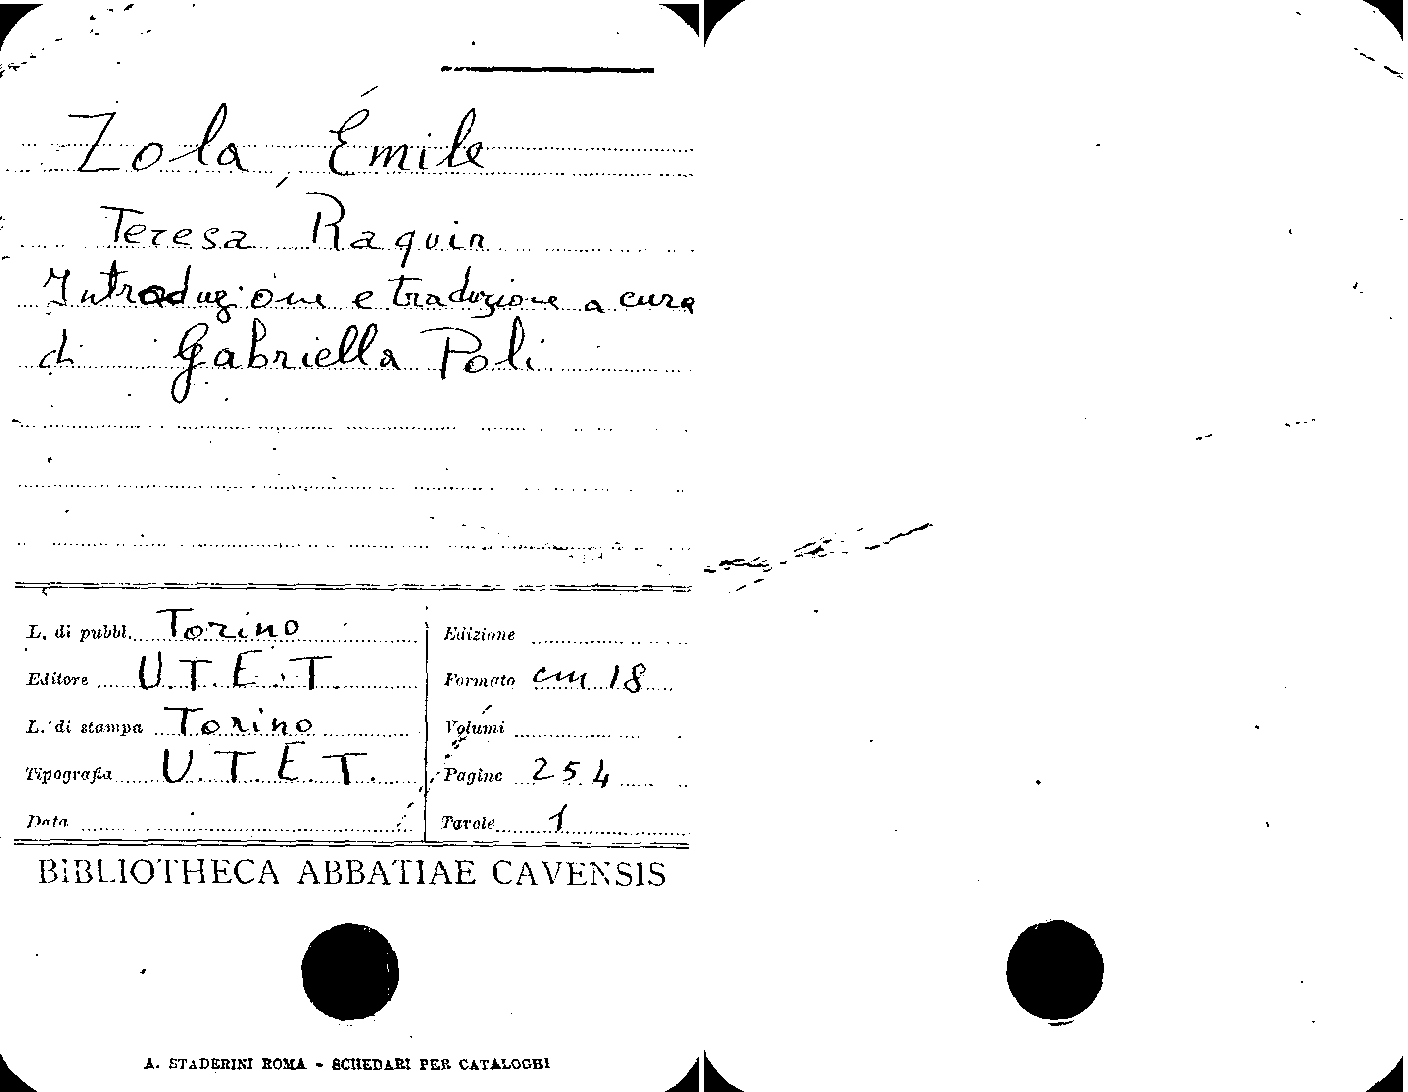 Zola, Émile
Teresa Raquin
Introduzione e traduzione a cura
di Gabriella Poli
L. di pubbl. Torino
Editore U.T.E.T.
L. di stampa Torino
Tipografia U.T.E.T.
Data
Edizione
Formato cm 18
Volumi
Pagine 254
Tavole 1
BIBLIOTHECA ABBATIAE CAVENSIS
A. STADERINI ROMA - SCHEDARI PER CATALOGHI